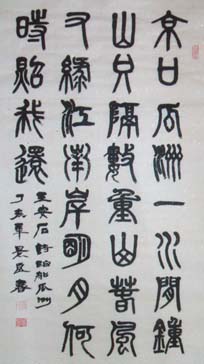 京口瓜洲一水間鐘
山只隔數重山春風
又綠江南岸明月何
時照我還
王安石詩泊船瓜洲
丁亥年